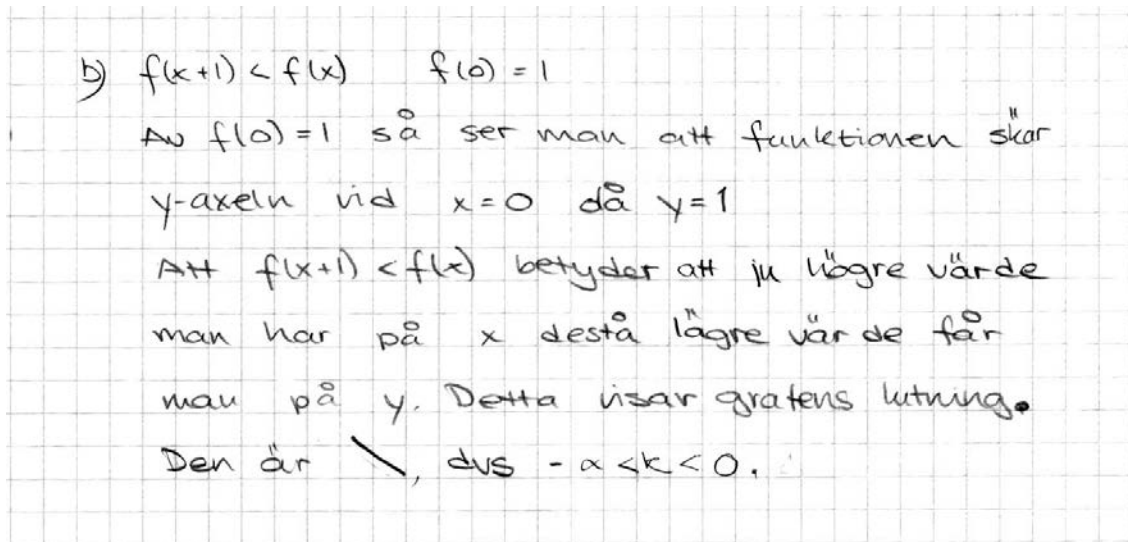 b) f(x+1) < f(x) f(0) = 1
Av f(0) = 1 så ser man att funktionen skär
y-axeln vid x = 0 då y = 1
Att f(x+1) < f(x) betyder att ju högre värde
man har på x destå lägre värde får
man på y. Detta visar grafens lutning.
Den är \, dvs - ∝ < k < 0.